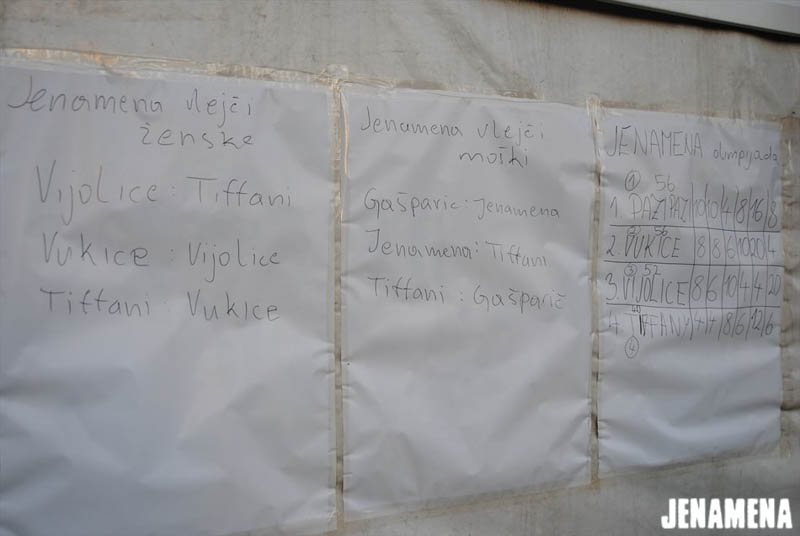 Jenamena vlejči
ženske
Vijolice : Tiffani
Vukice : Vijolice
Tiffani : Vukice
Jenamena vlejči
moški
Gašparič : Jenamena
Jenamena : Tiffani
Tiffani : Gašparič
JENAMENA olimpijada
① 56
1. PAZI PAZ 10 10 4 8 16 8
② 56
2. VUKICE 8 8 6 10 20 4
③ 52
3. VIJOLICE 8 6 10 4 4 20
4. TIFFANY 4 4 8 6 12 6
④
JENAMENA